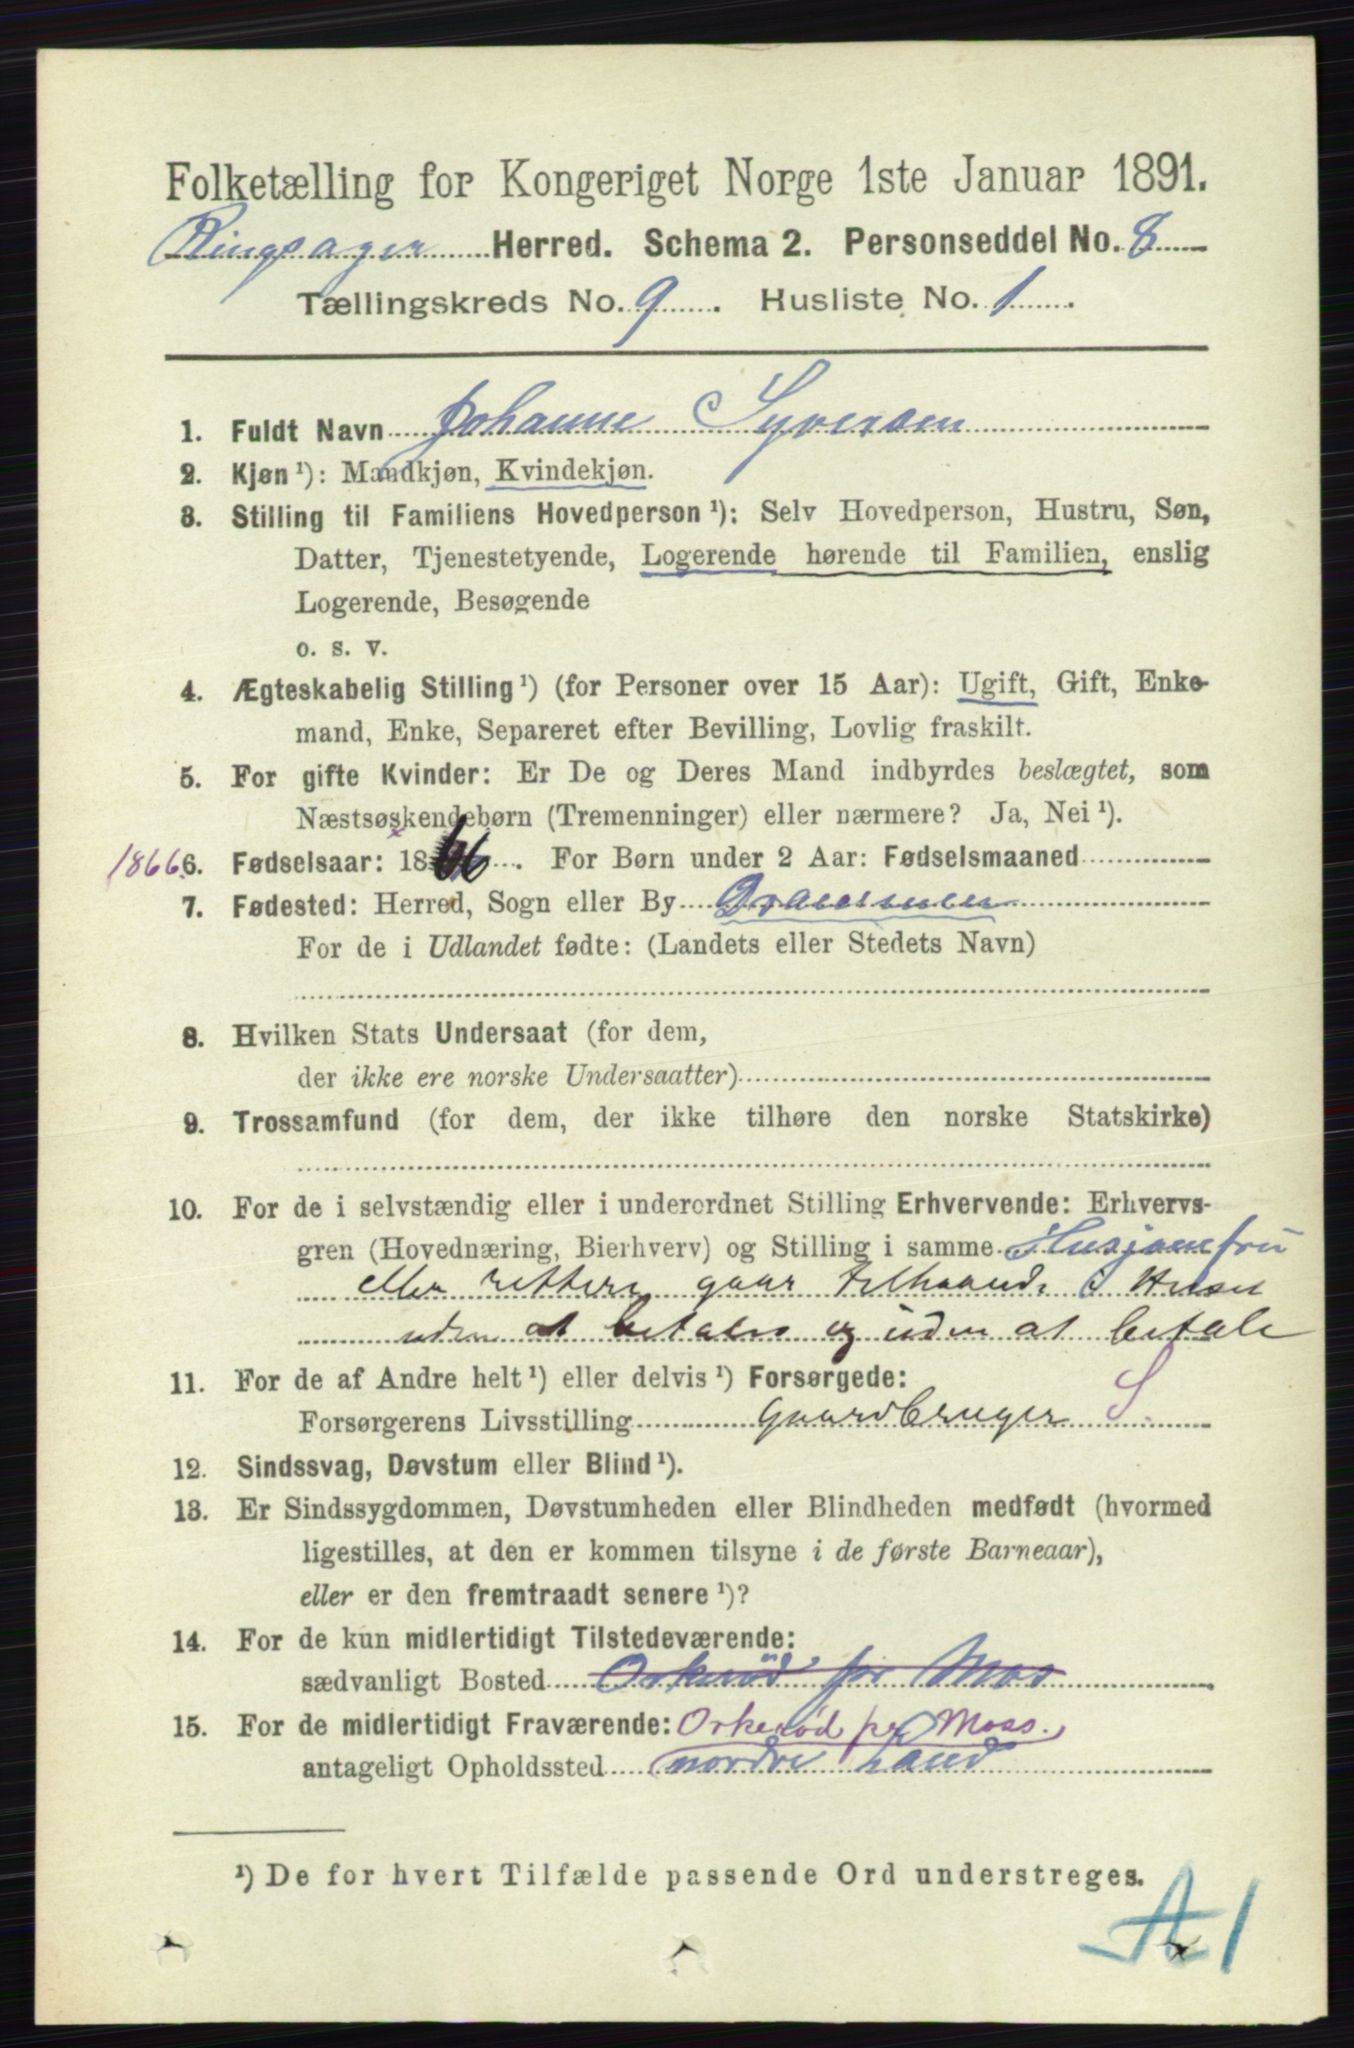 Folketælling for Kongeriget Norge 1ste Januar 1891.
Ringsager Herred. Schema 2. Personseddel No. 8
Tællingskreds No. 9. Husliste No. 1.
1. Fuldt Navn Johanne Syversen
2. Kjøn ¹): Mandkjøn, Kvindekjøn.
3. Stilling til Familiens Hovedperson ¹): Selv Hovedperson, Hustru, Søn,
Datter, Tjenestetyende, Logerende hørende til Familien, enslig
Logerende, Besøgende
o. s. v.
4. Ægteskabelig Stilling ¹) (for Personer over 15 Aar): Ugift, Gift, Enke-
mand, Enke, Separeret efter Bevilling, Lovlig fraskilt.
5. For gifte Kvinder: Er De og Deres Mand indbyrdes beslægtet, som
Næstsøskendebørn (Tremenninger) eller nærmere? Ja, Nei ¹).
1866. 6. Fødselsaar: 1866. For Børn under 2 Aar: Fødselsmaaned
7. Fødested: Herred, Sogn eller By Drammen
For de i Udlandet fødte: (Landets eller Stedets Navn)
8. Hvilken Stats Undersaat (for dem,
der ikke ere norske Undersaatter)
9. Trossamfund (for dem, der ikke tilhøre den norske Statskirke)
10. For de i selvstændig eller i underordnet Stilling Erhvervende: Erhvervs-
gren (Hovednæring, Bierhverv) og Stilling i samme Husjomfru
eller rettere gaar tilhaande i Huset
uden at betales og uden at betale
11. For de af Andre helt ¹) eller delvis ¹) Forsørgede:
Forsørgerens Livsstilling Gaardbruger S.
12. Sindssvag, Døvstum eller Blind ¹).
13. Er Sindssygdommen, Døvstumheden eller Blindheden medfødt (hvormed
ligestilles, at den er kommen tilsyne i de første Barneaar),
eller er den fremtraadt senere ¹)?
14. For de kun midlertidigt Tilstedeværende:
sædvanligt Bosted Orkeröd pr Moss
15. For de midlertidigt Fraværende: Orkerød pr Moss.
antageligt Opholdssted nordre Land
¹) De for hvert Tilfælde passende Ord understreges.
A1